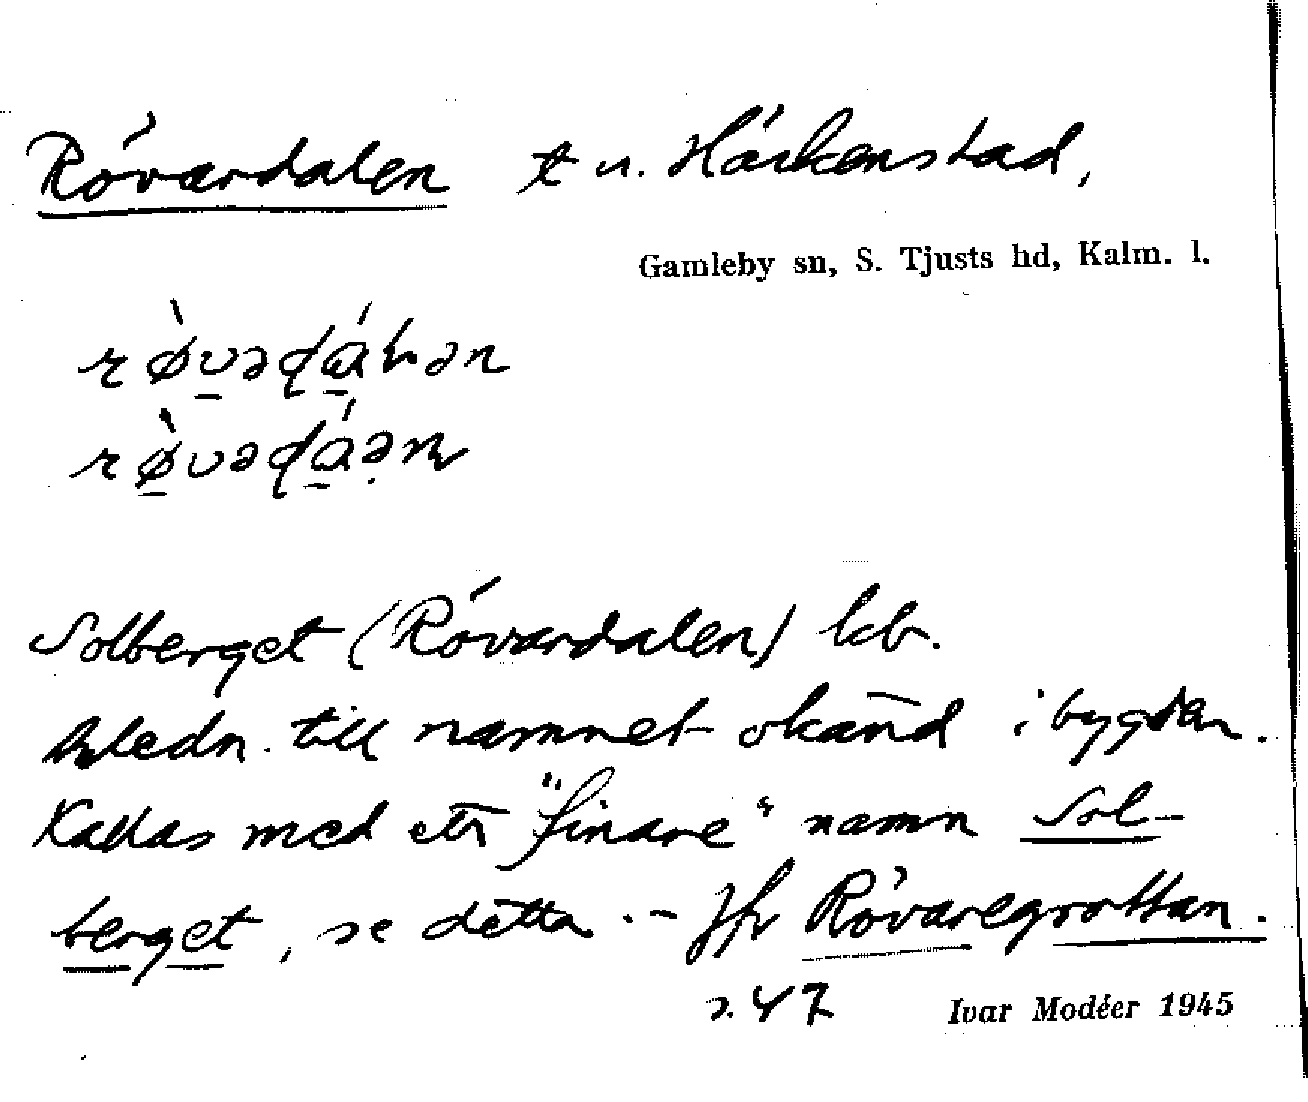 Rövardalen t u. Härkenstad,
Gamleby sn, S. Tjusts hd, Kalm. l.
Solberget (Rövardalen) kb.
Anledn. till namnet okänd i bygden.
Kallas med ett "finare" namn Sol-
berget, se detta. - Jfr Rövaregrottan.
s. 47
Ivar Modéer 1945